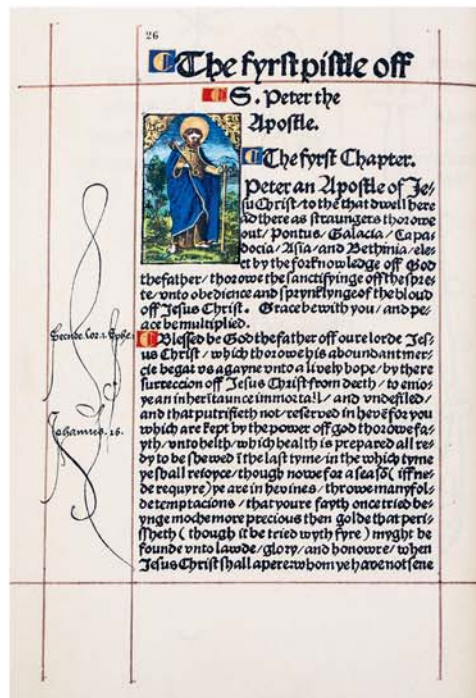 26
The fyrst pistle off
S. Peter the
Apostle.
The fyrst Chapter.
Peter an Apostle of Je/
su Christ/to thē that dwell here
ād there as straungers thorowe
out/ Pontus/ Galacia/ Capa/
docia/ Asia/ and Bethinia/ ele/
ct by the forknowledge off God
the father/ thorowe the sanctifyinge off the spre/
te/ vnto obedience and sprynklynge of the bloud
off Jesus Christ. Grace be with you/ and pe/
ace be multiplied.
Blessed be God the father off oure lorde Jes/
us Christ/ which thorowe his aboundant mer/
cie begat vs agayne vnto a lively hope/ by there
surreccion off Jesus Christ from deeth/ to enioy
ye an inheritaunce immortall/ and vndefiled/
and that putrifieth not/ reserved in hevē for you
which are kept by the power off god thorowe fa/
yth/ vnto helth/ which health is prepared all re/
dy to be shewed ī the last tyme/ in the which tyme
ye shall reioyce/ though nowe for a seasō( iff ne/
de requyre) ye are in hevines/ throwe manyfol/
de temptacions/ that youre fayth once tried be/
ynge moche more precious then golde that peri/
ssheth ( though it be tried wyth fyre) myght be
founde vnto lawde/ glory/ and honowre/ when
Jesus Christ shall apere: whom ye have not sene
Johannes. 16.